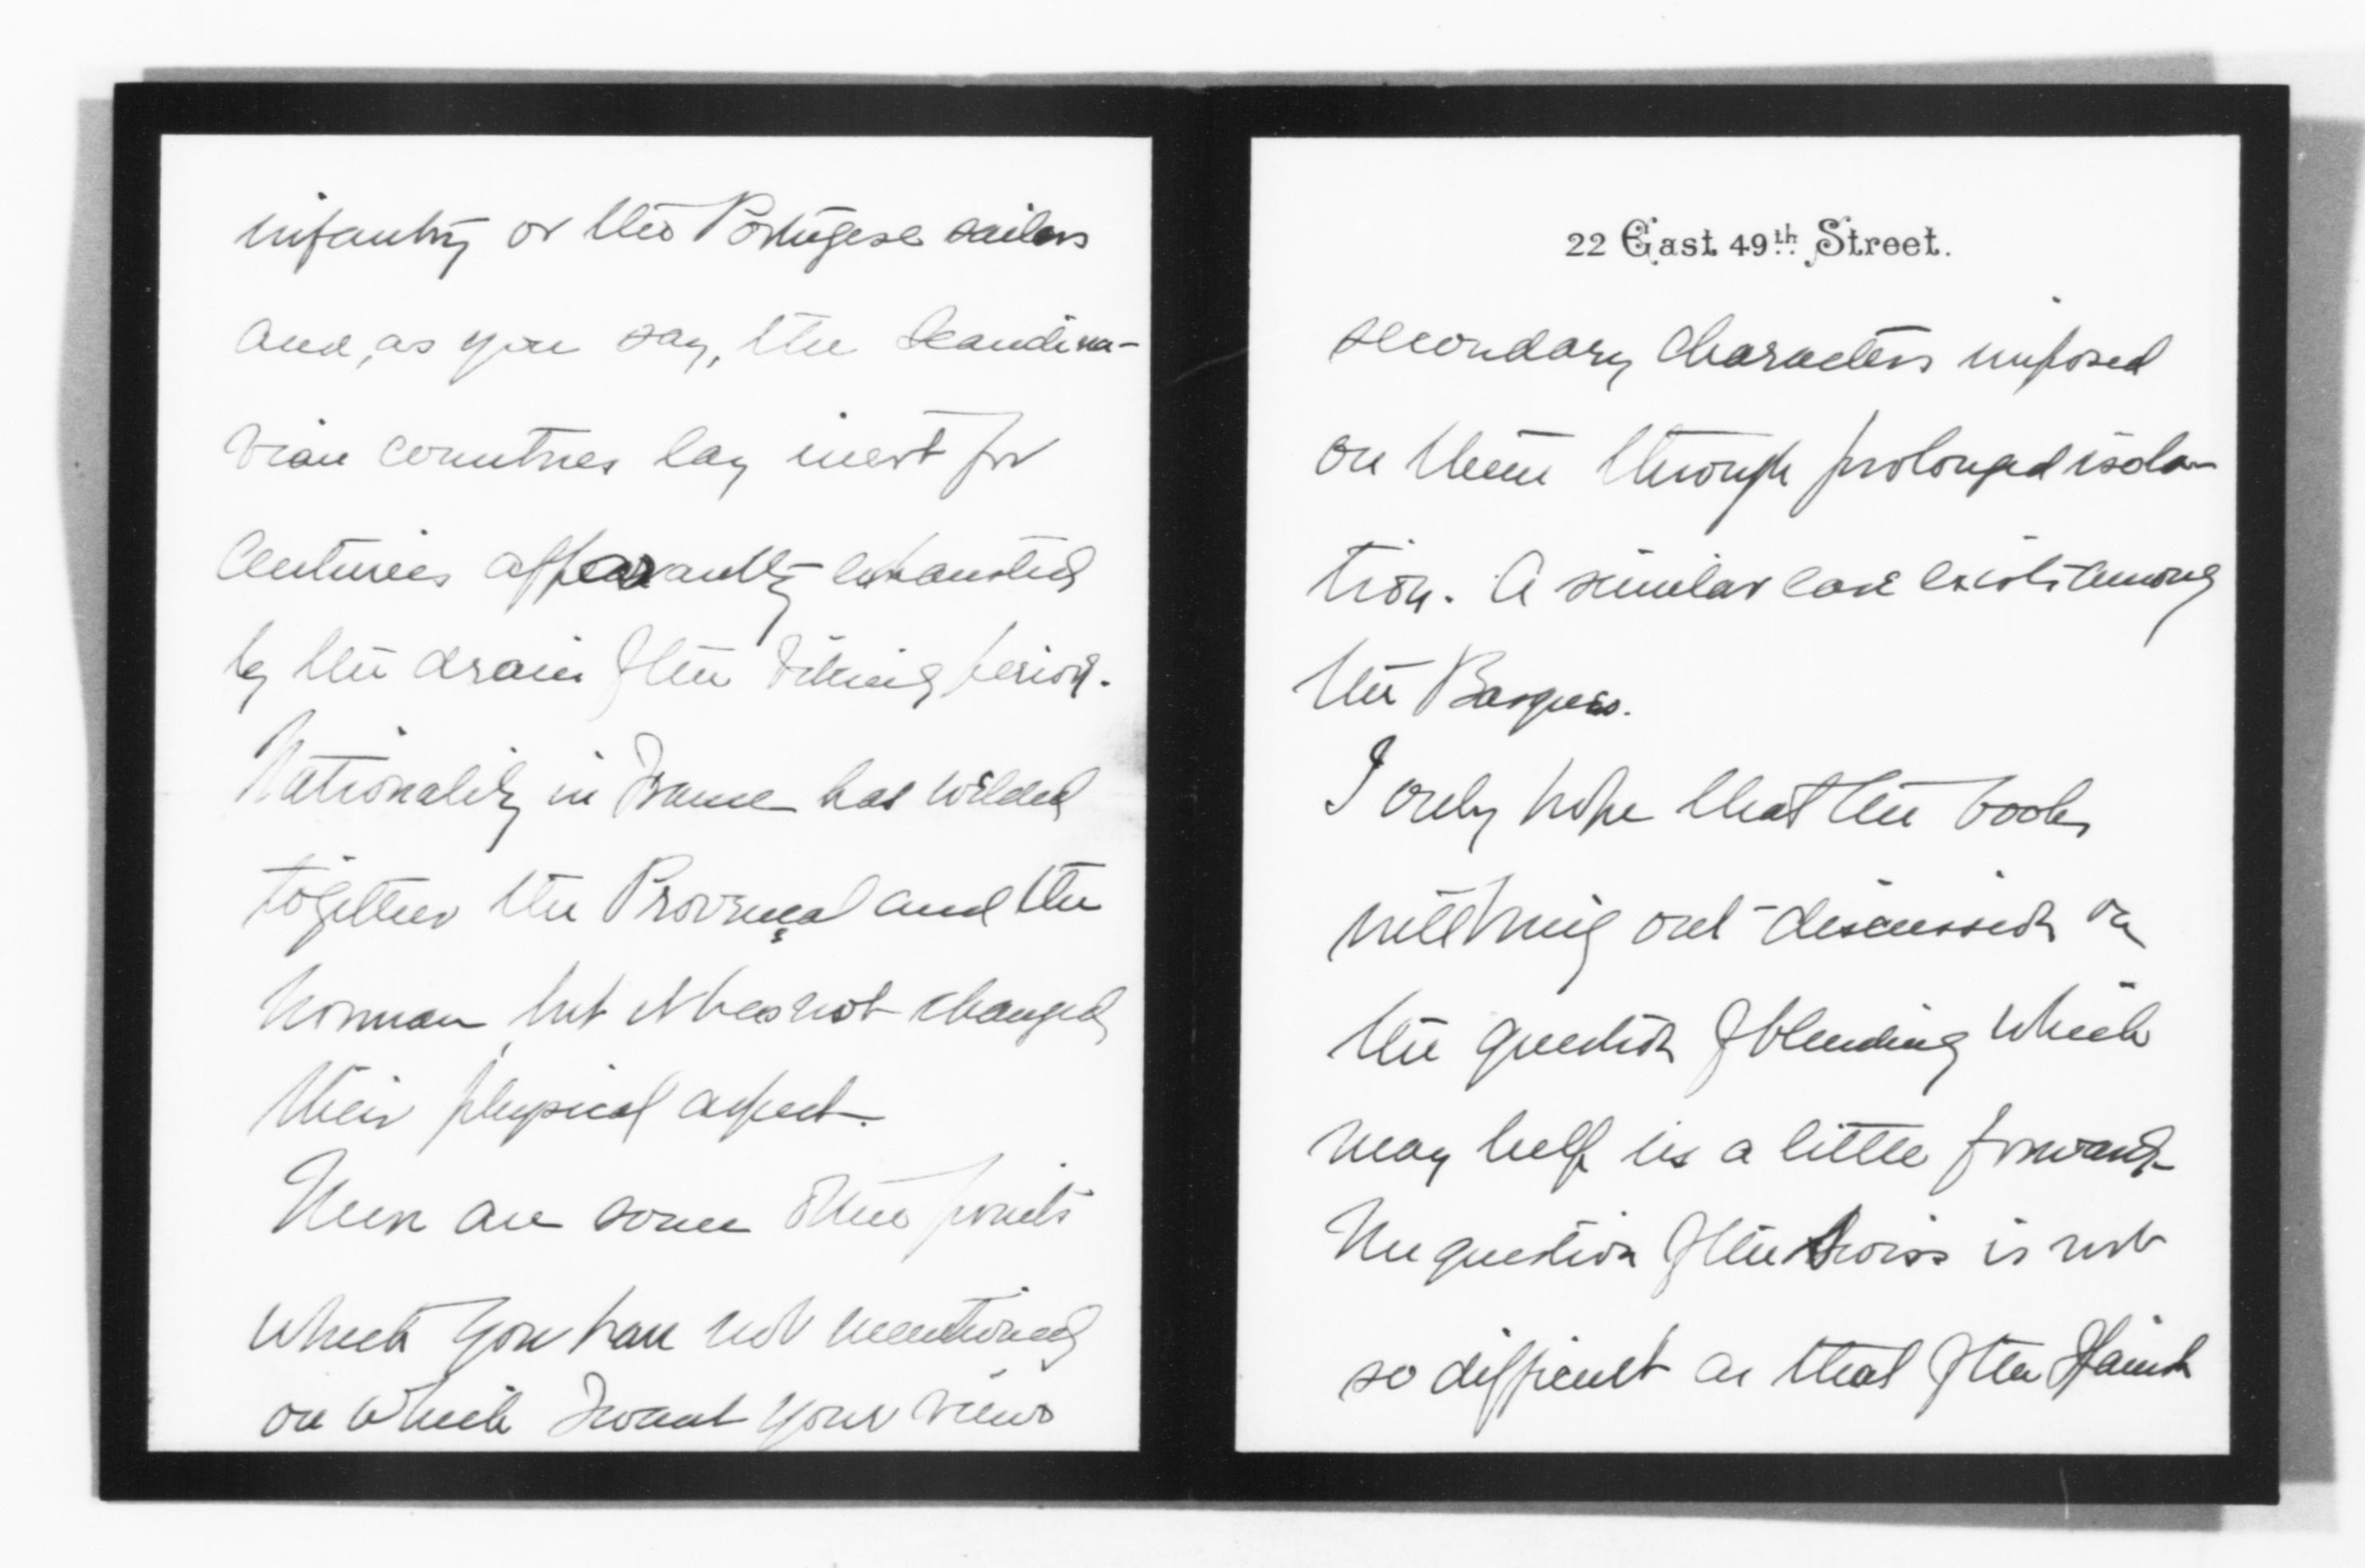 infantry or the Portugese sailors
and, as you say, the Scandina-
vian countries lay inert for
centuries apparantly exhausted
by the drain of the Viking period.
Nationality in France has welded
together the Provençal and the
Norman, but it has not changed
their physical aspect.
There are some other points
which you have not mentioned
on which I want your views
22 East 49th Street.
secondary characters imposed
on them through prolonged isola-
tion. A similar case exists among
the Basques.
I only hope that the book
will bring out discussion on
the question of blending which
may help us a little forward.
The question of the Swiss is not
so difficult as that of the